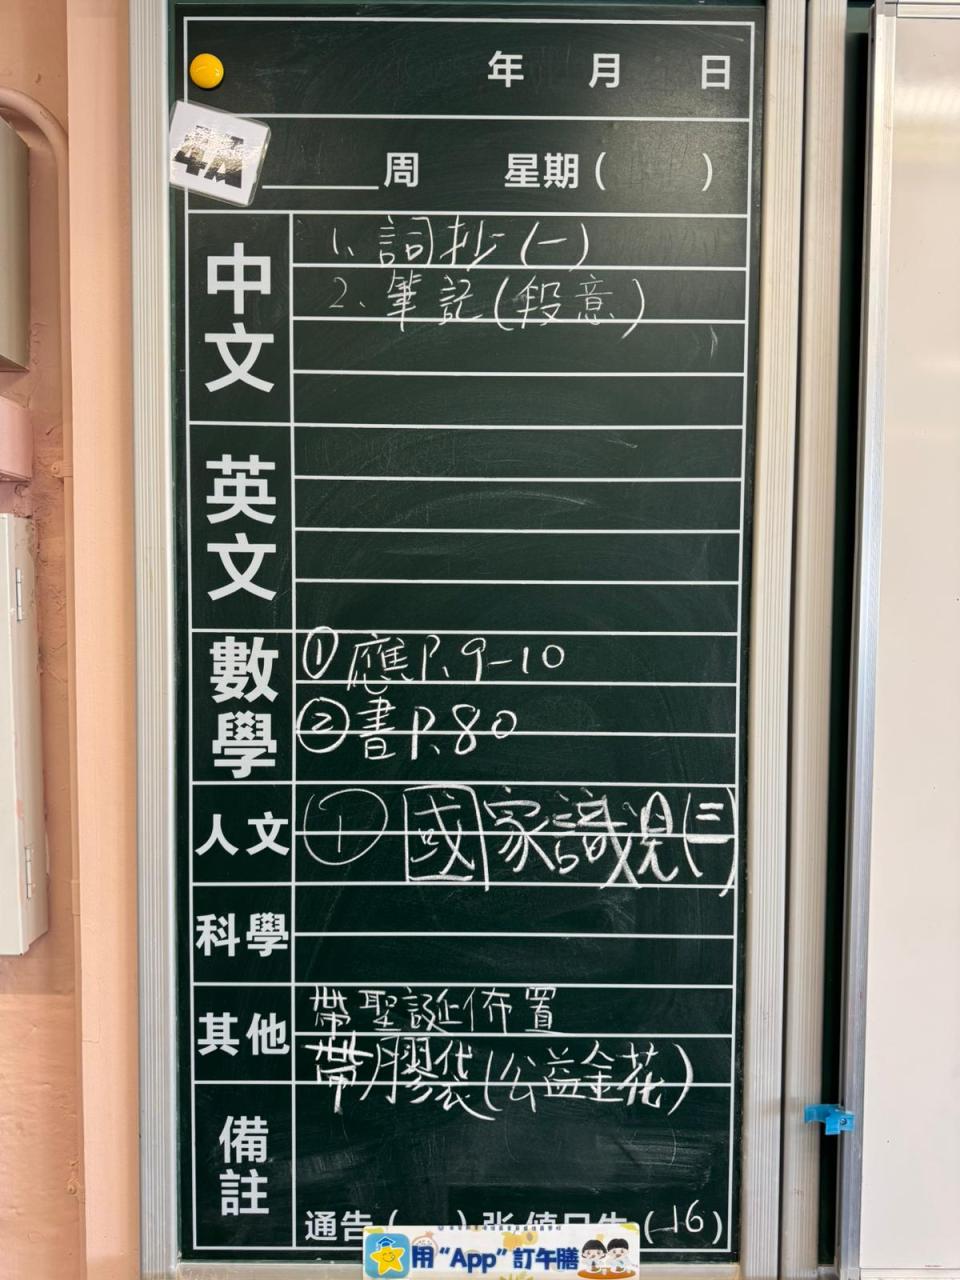 年 月 日
4A
周 星期( )
中文
1、詞抄(一)
2、筆記(段意)
英文
數學
①應P.9-10
②書P.80
人文
① 國家識見(二)
科學
其他
帶聖誕佈置
帶膠袋(公益金花)
備註
通告( ) 張 (16)
用“App”訂午膳